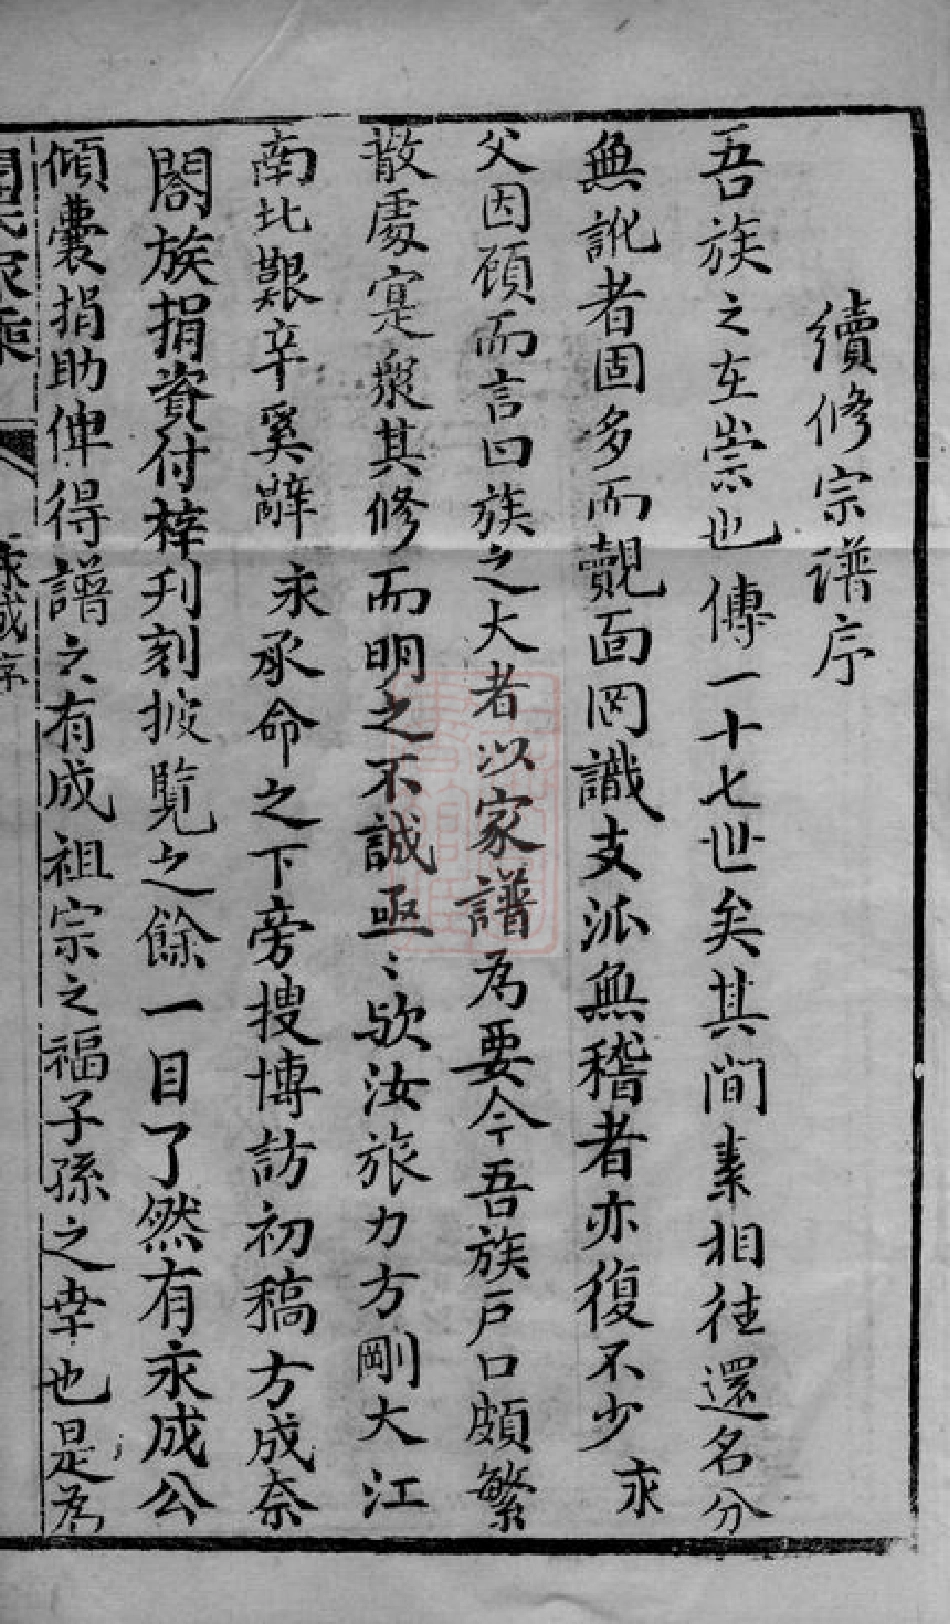 續修宗譜序
吾族之在崇也傳一十七世矣其間素相往還名分
無訛者固多而覿面罔識支派無稽者亦復不少 永
父因顧而言曰族之大者以家譜為要今吾族戶口頗繁
散處寔衆其修而明之不誠亟〻歟汝旅力方剛大江
南北艱辛奚辭 永承命之下旁搜博訪初稿方成奈
閤族捐資付梓刋刻披覽之餘一目了然有永成公
傾囊捐助俾得譜之有成祖宗之福子孫之幸也是為
家乘
永成序